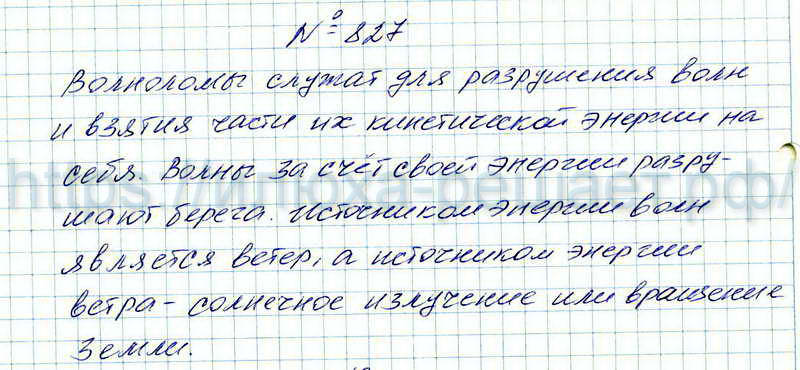 № 827
Волноломы служат для разрушения волн
и взятия части их кинетической энергии на
себя. Волны за счёт своей энергии разру-
шают берега. Источником энергии волн
является ветер, а источником энергии
ветра - солнечное излучение или вращение
Земли.